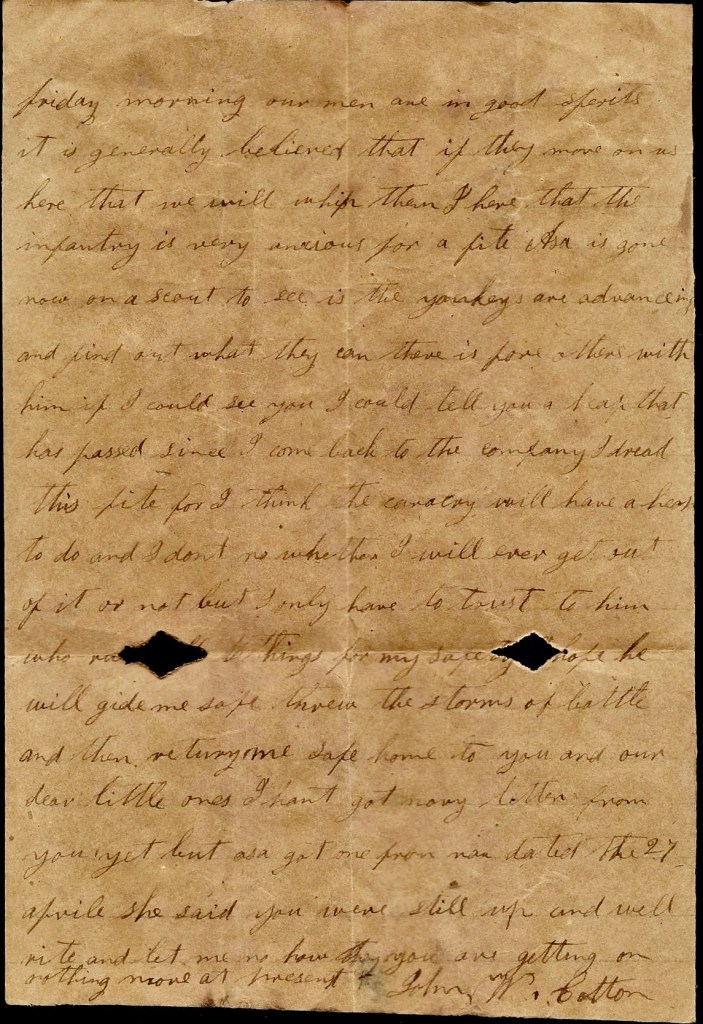 friday morning our men are in good sperits
it is generally believed that if they move on us
here that we will whip them I here that the
infantry is very anxious for a fite Asa is gone
now on a scout to see is the yankeys are advanceing
and find out what they can there is fore others with
him if I could see you I could tell you a heap that
has passed since I come back to the company I dread
this fite for I think the cavacry will have a heap
to do and I dont no whether I will ever get out
of it or not but I only have to trust to him
who things for my safety I hope he
will gide me safe threw the storms of battle
and then return me safe home to you and our
dear little ones I hant got nary letter from
you yet but asa got one from nan dated the 27
aprile she said you were still up and well
rite and let me no how you are getting on
nothing more at present John W. Cotton